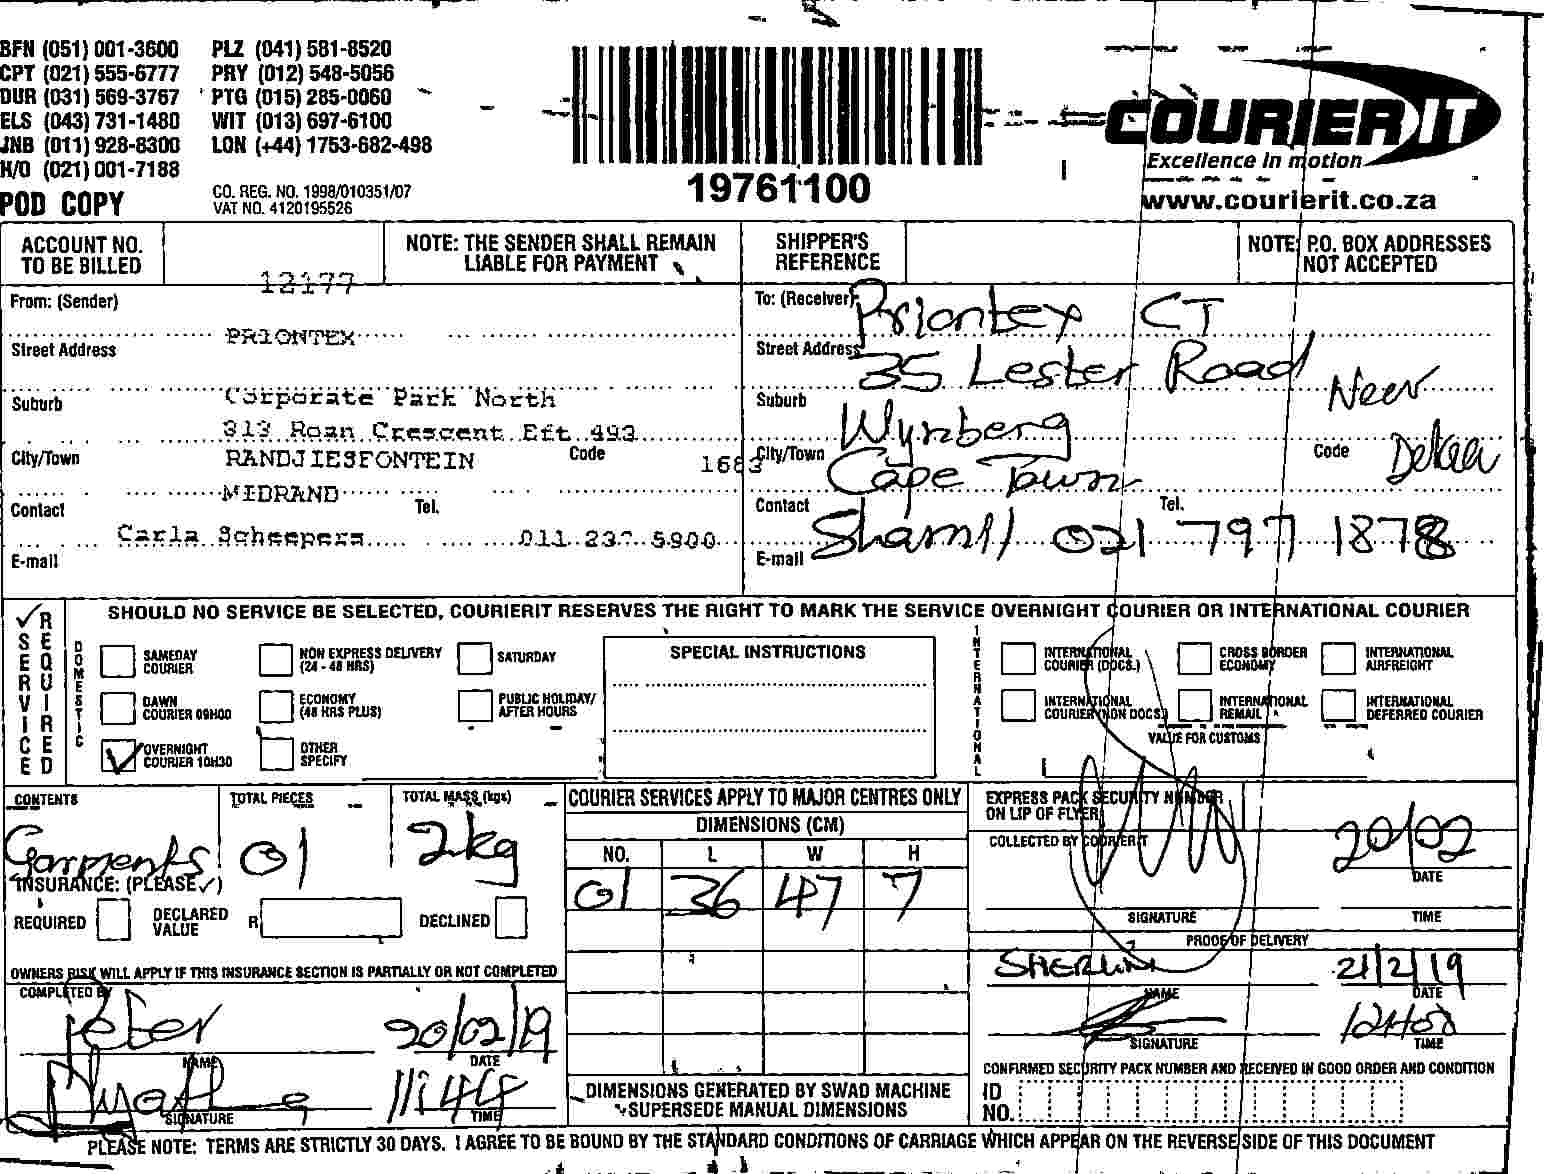 BFN (051) 001-3600 PLZ (041) 581-8520
CPT (021) 555-6777 PRY (012) 548-5056
DUR (031) 569-3767 PTG (015) 285-0060
ELS (043) 731-1480 WIT (013) 697-6100
JNB (011) 928-8300 LON (+44) 1753-682-498
H/O (021) 001-7188
POD COPY
CO. REG. NO. 1998/010351/07
VAT NO. 4120195526
19761100
COURIER IT
Excellence in motion
www.courierit.co.za
ACCOUNT NO. TO BE BILLED
12177
NOTE: THE SENDER SHALL REMAIN LIABLE FOR PAYMENT
SHIPPER'S REFERENCE
NOTE: P.O. BOX ADDRESSES NOT ACCEPTED
From: (Sender)
PRIONTEX
Street Address
Corporate Park North
Suburb
313 Roan Crescent Eft 493
City/Town RANDJIESFONTEIN Code 1683
MIDRAND
Contact Tel.
Carla Scheepers 011 237 5900
E-mail
To: (Receiver) Priontex CT
Street Address 35 Lester Road
Suburb Wynberg
City/Town Cape Town Code
Contact Tel.
Shamil 021 797 1878
E-mail
SERVICE REQUIRED
SHOULD NO SERVICE BE SELECTED, COURIERIT RESERVES THE RIGHT TO MARK THE SERVICE OVERNIGHT COURIER OR INTERNATIONAL COURIER
DOMESTIC
SAMEDAY COURIER
NON EXPRESS DELIVERY (24 - 48 HRS)
SATURDAY
DAWN COURIER 09H00
ECONOMY (48 HRS PLUS)
PUBLIC HOLIDAY/ AFTER HOURS
OVERNIGHT COURIER 10H30
OTHER SPECIFY
SPECIAL INSTRUCTIONS
INTERNATIONAL
INTERNATIONAL COURIER (DOCS.)
CROSS BORDER ECONOMY
INTERNATIONAL AIRFREIGHT
INTERNATIONAL COURIER (NON DOCS.)
INTERNATIONAL REMAIL
INTERNATIONAL DEFERRED COURIER
VALUE FOR CUSTOMS
CONTENTS TOTAL PIECES TOTAL MASS (kgs)
Garments 01 2kg
INSURANCE: (PLEASE ✓)
REQUIRED DECLARED VALUE R DECLINED
OWNERS RISK WILL APPLY IF THIS INSURANCE SECTION IS PARTIALLY OR NOT COMPLETED
COMPLETED BY
Peter 20/02/19
NAME DATE
11:44
SIGNATURE TIME
COURIER SERVICES APPLY TO MAJOR CENTRES ONLY
DIMENSIONS (CM)
NO. L W H
01 36 47 7
DIMENSIONS GENERATED BY SWAD MACHINE SUPERSEDE MANUAL DIMENSIONS
EXPRESS PACK SECURITY NUMBER ON LIP OF FLYER
COLLECTED BY COURIERIT
20/02
DATE
SIGNATURE TIME
PROOF OF DELIVERY
21/2/19
NAME DATE
12H08
SIGNATURE TIME
CONFIRMED SECURITY PACK NUMBER AND RECEIVED IN GOOD ORDER AND CONDITION
ID NO.
PLEASE NOTE: TERMS ARE STRICTLY 30 DAYS. I AGREE TO BE BOUND BY THE STANDARD CONDITIONS OF CARRIAGE WHICH APPEAR ON THE REVERSE SIDE OF THIS DOCUMENT